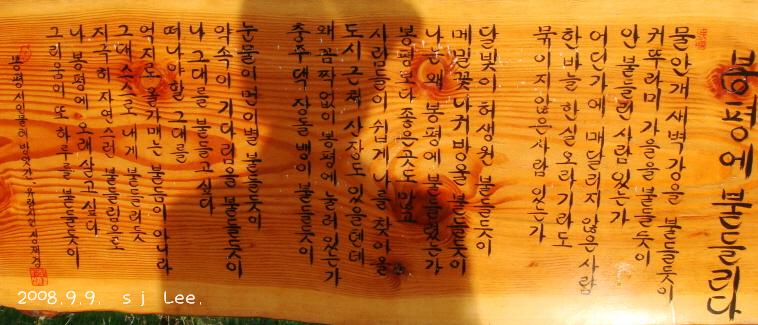 봉평에 붙들리다
물안개 새벽강을 붙들듯이
귀뚜라미 가을을 붙들듯이
안 붙들린 사람 있는가
어딘가에 매달리지 않은 사람
한바늘 한실오라기라도
묶이지 않은 사람 있는가
달빛이 허생원 붙들듯이
메밀꽃 나귀방울 붙들듯이
나는 왜 봉평에 붙들렸는가
봉평보다 좋은 곳도 많고
사람들이 쉽게 나를 찾아올
도시 근처 산장도 있을텐데
왜 꼼짝 없이 봉평에 눌러 있는가
충주댁 장돌뱅이 붙들듯이
눈물이 먼 이별 붙들듯이
약속이 기다림을 붙들듯이
나 그대를 붙들고 싶다
떠나야 할 그대를
억지로 옭아매는 붙듬이 아니라
그대 스스로 내게 붙들리듯
지극히 자연스런 붙들림으로
나 봉평에 오래 살고 싶다
그리움이 또 하루를 붙들듯이
봉평
2008.9.9. s j Lee.